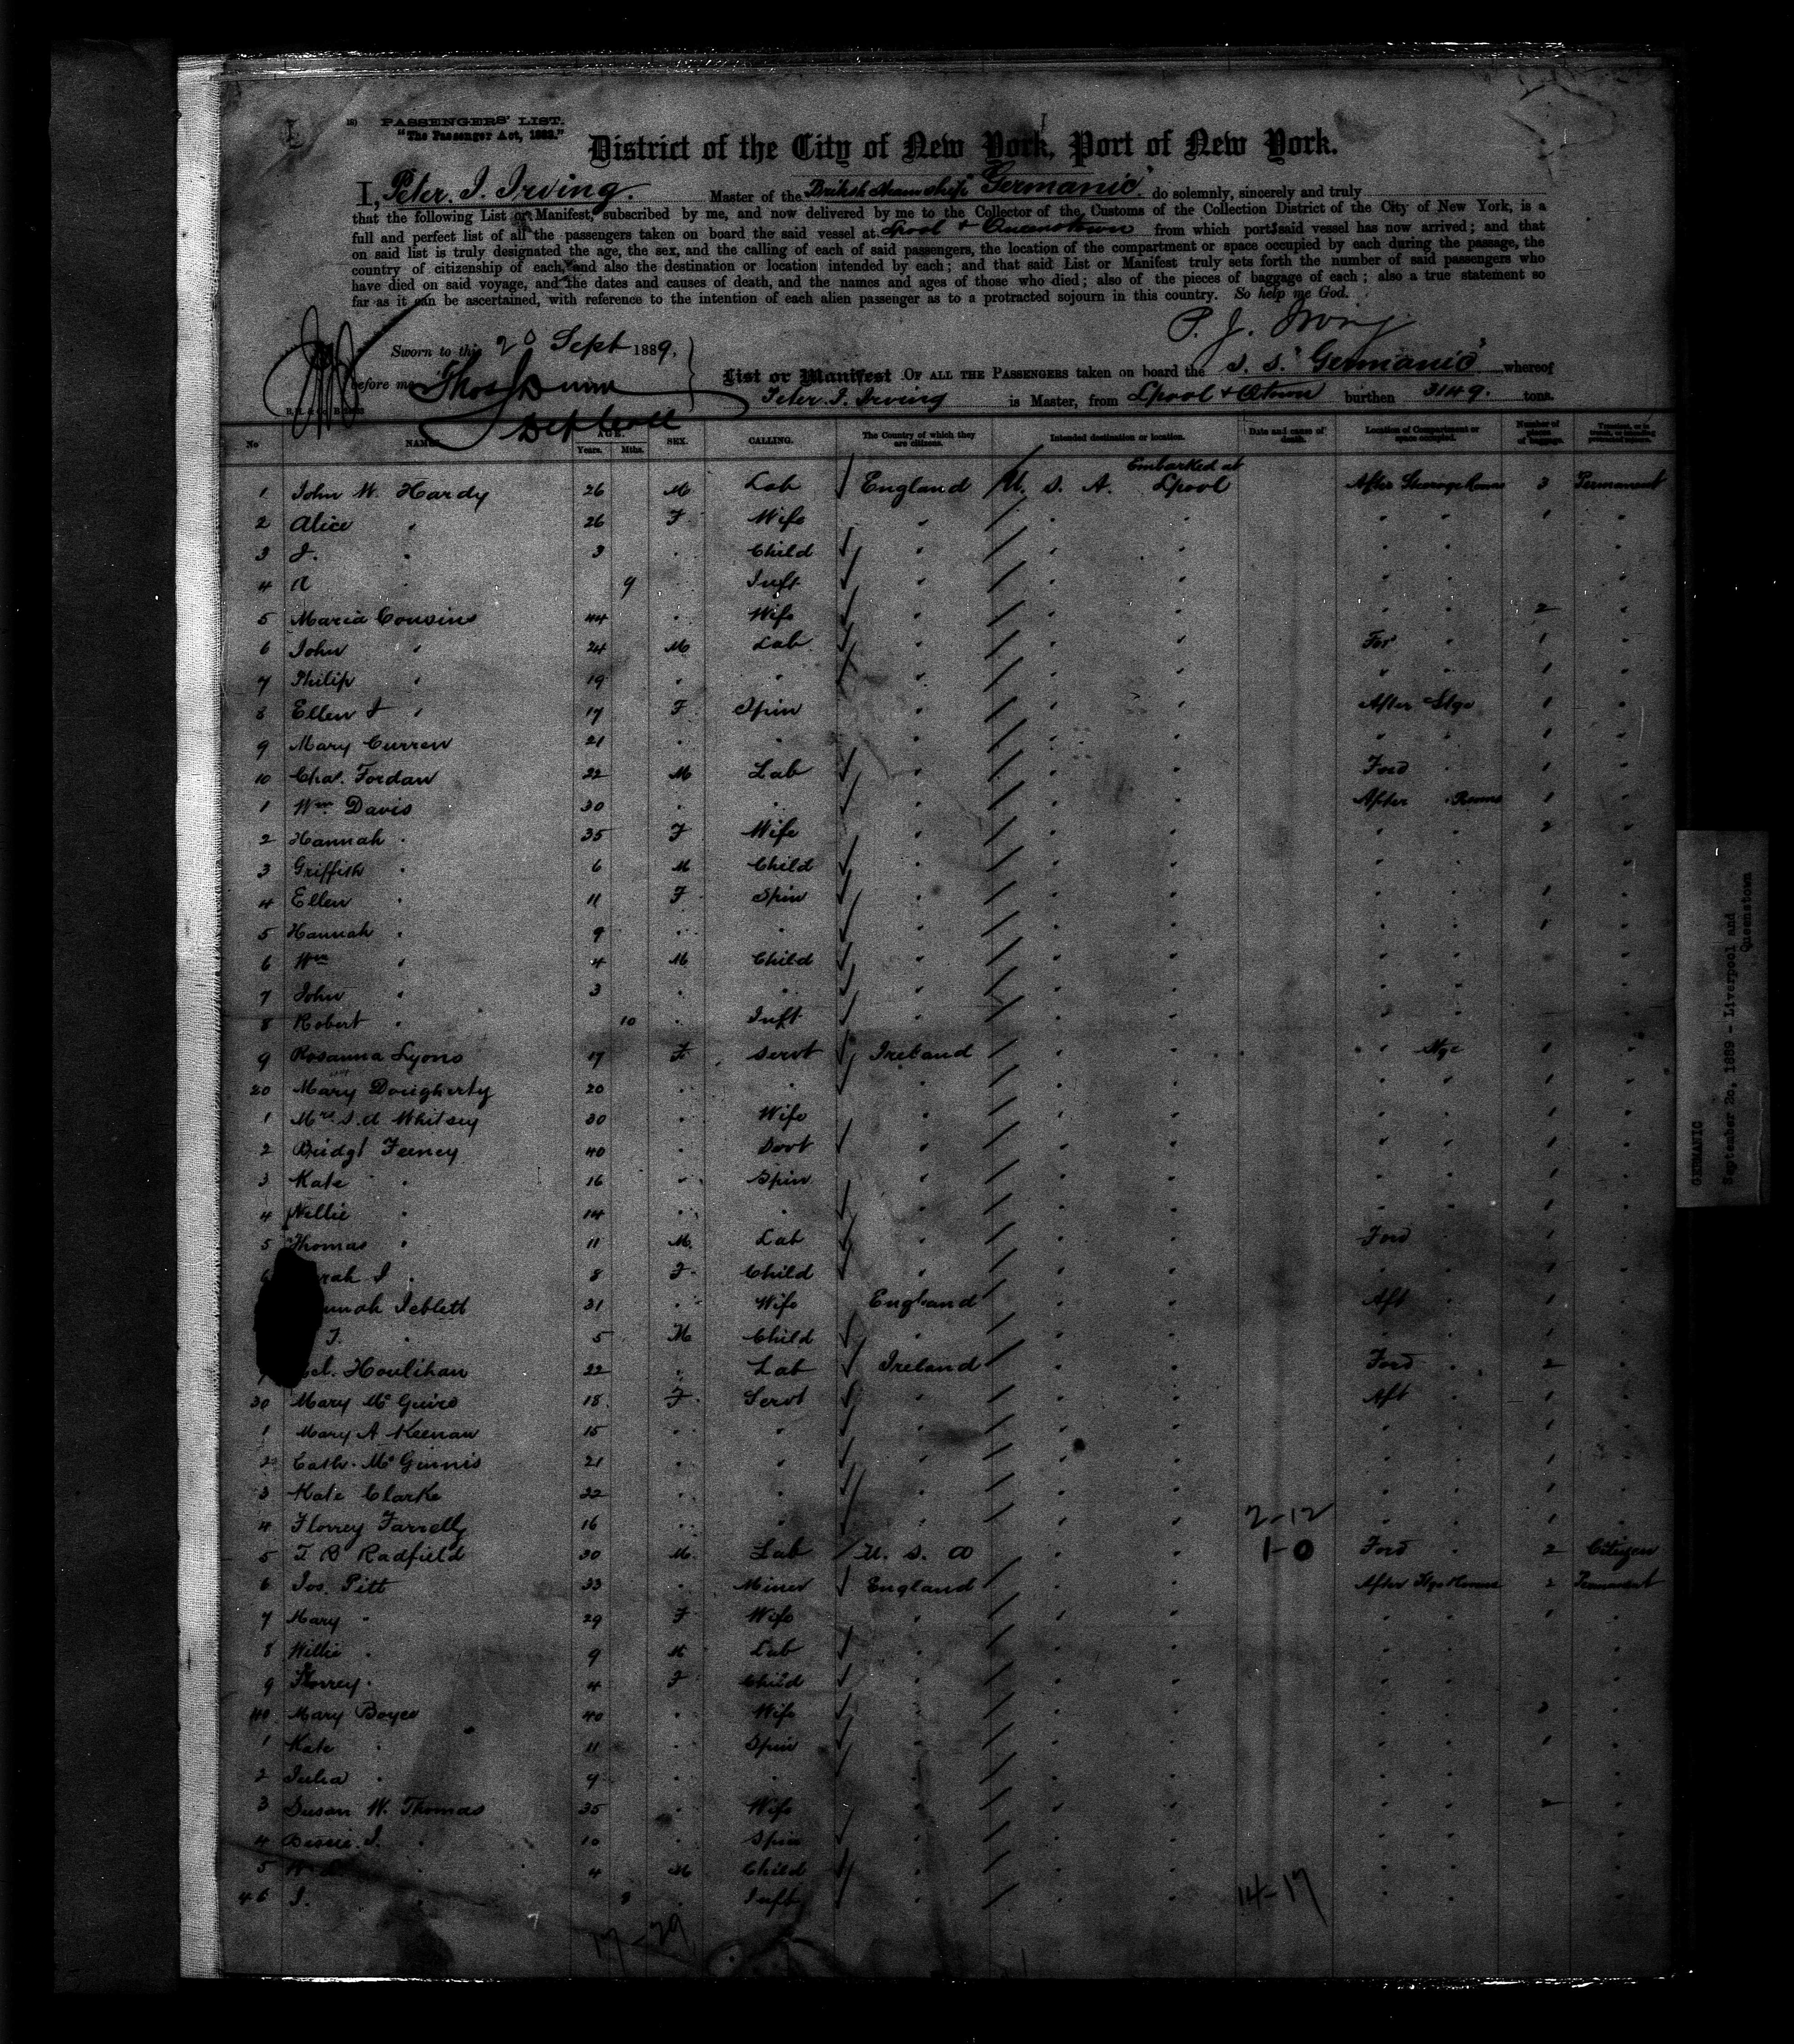 PASSENGERS' LIST.
"The Passenger Act, 1882."
District of the City of New York, Port of New York.
I, Peter. J. Irving. Master of the British Steamship "Germanic" do solemnly, sincerely and truly
that the following List or Manifest, subscribed by me, and now delivered by me to the Collector of the Customs of the Collection District of the City of New York, is a
full and perfect list of all the passengers taken on board the said vessel at Lpool + Queenstown from which port said vessel has now arrived; and that
on said list is truly designated the age, the sex, and the calling of each of said passengers, the location of the compartment or space occupied by each during the passage, the
country of citizenship of each, and also the destination or location intended by each; and that said List or Manifest truly sets forth the number of said passengers who
have died on said voyage, and the dates and causes of death, and the names and ages of those who died; also of the pieces of baggage of each; also a true statement so
far as it can be ascertained, with reference to the intention of each alien passenger as to a protracted sojourn in this country. So help me God.
P. J. Irving
Sworn to this 20 Sept 1889,
before me Thos Dunn
Dep Coll
List or Manifest OF ALL THE PASSENGERS taken on board the S. S. "Germanic" whereof
Peter. J. Irving is Master, from Lpool + Qtown burthen 3149. tons.
No NAMES. AGE. Years. Mths. SEX. CALLING. The Country of which they are citizens. Intended destination or location. Date and cause of death. Location of Compartment or space occupied. Number of pieces of baggage.
Embarked at
1 John W. Hardy 26 M Lab England U. S. A. Lpool After Steerage Rooms 3 Permanent
2 Alice " 26 F Wife " " " " " 1 "
3 J. " 3 " Child " " " " " "
4 A " 9 " Inft " " " " " "
5 Maria Cousins 44 " Wife " " " " " 2 "
6 John " 24 M Lab " " " For " 1 "
7 Philip " 19 " " " " " " " 1 "
8 Ellen J " 17 F Spin " " " After Stge 1 "
9 Mary Curren 21 " " " " " " " 1 "
10 Chas. Fordan 22 M Lab " " " Ford " 1 "
1 Wm Davis 30 " " " " " After " Rooms 1 "
2 Hannah " 35 F Wife " " " " " 2 "
3 Griffith " 6 M Child " " " " " "
4 Ellen " 11 F Spin " " " " " 1 "
5 Hannah " 9 " " " " " " " 1 "
6 Wm " 4 M Child " " " " " "
7 John " 3 " " " " " " " "
8 Robert " 10 " Inft " " " " " "
9 Rosanna Lyons 17 F Servt Ireland " " " Stge 1 "
20 Mary Dougherty 20 " " " " " " " 1 "
1 Mrs S. A Whitsey 30 " Wife " " " " " 1 "
2 Bridgt Feeney 40 " Servt " " " " " 1 "
3 Kate " 16 " Spin " " " " " 1 "
4 Nellie " 14 " " " " " " " 1 "
5 Thomas " 11 M. Lab " " " Ford " 1 "
6 rah J " 8 F Child " " " " " 1 "
nnah Teblett 31 " Wife England " " Aft " 1 "
T. " 5 M Child " " " " " 1 "
Houlihan 22 " Lab Ireland " " Ford " 2 "
30 Mary McGuire 18 F Servt " " " Aft " 1 "
1 Mary A Keenan 15 " " " " " " " 1 "
2 Cath. McGinnis 21 " " " " " " " 1 "
3 Kate Clarke 22 " " " " " " " 1 "
4 Florrey Farrelly 16 " " " " " 2-12 " " 1 "
5 T B Radfield 30 M Lab U. S. A " " 1-0 Ford " 2 Citizen
6 Jos. Pitt 33 " Miner England " " After Stge Rooms 2 Permanent
7 Mary " 29 F Wife " " " " " 1 "
8 Willie " 9 M Lab " " " " " 1 "
9 Florrey " 4 F Child " " " " " 1 "
40 Mary Boyes 40 " Wife " " " " " 3 "
1 Kate " 11 " Spin " " " " " 1 "
2 Julia " 9 " " " " " " " "
3 Susan W. Thomas 35 " Wife " " " " " 2 "
4 Bessie J. " 10 " Spin " " " " " "
5 " 4 M Child " " " " " "
46 J. " " Inft " " " 14-17 " " "
17-29
GERMANIC
September 20, 1889 - Liverpool and
Queenstown